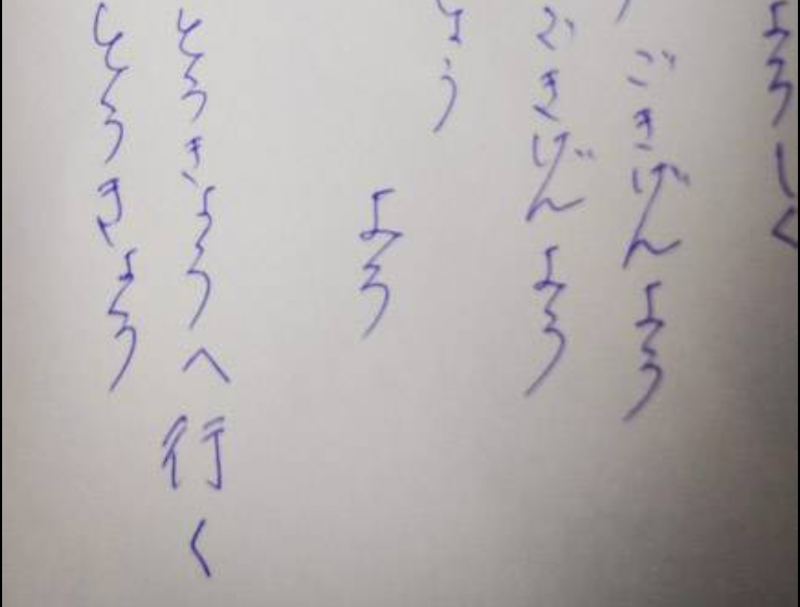 よろしく
ごきげんよう
ごきげんよう
よう
よう
とうきょうへ行く
とうきょう